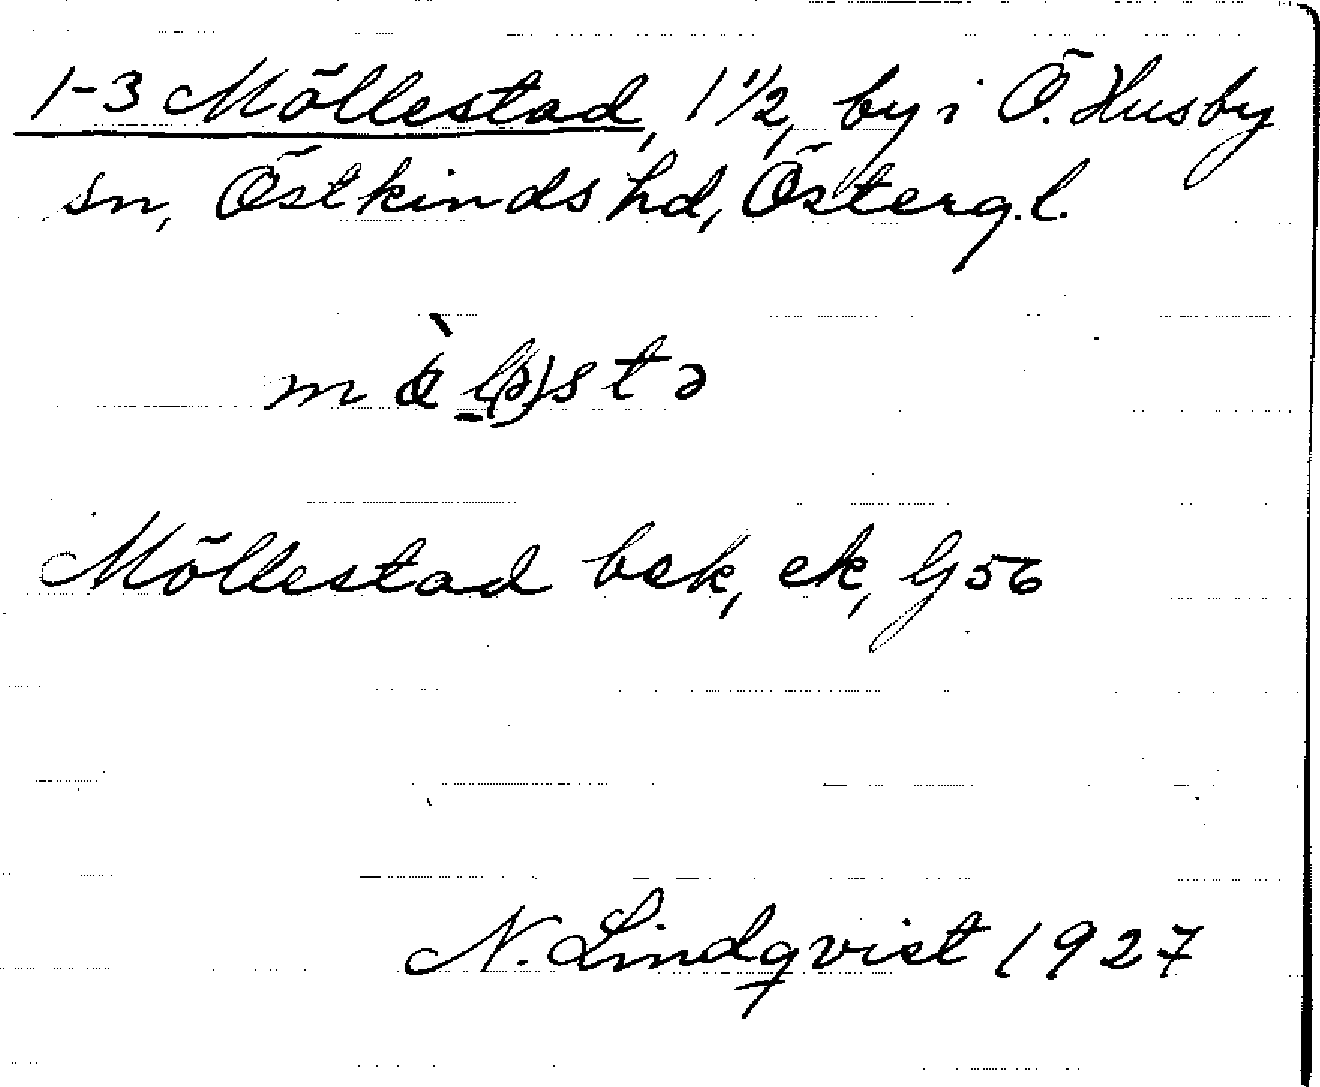 1-3 Möllestad, 1 1/2, by i Ö. Husby
sn, Östkinds hd, Österg.l.
mö̀l(ə)stə
Möllestad bek, ek, G56
N. Lindqvist 1927